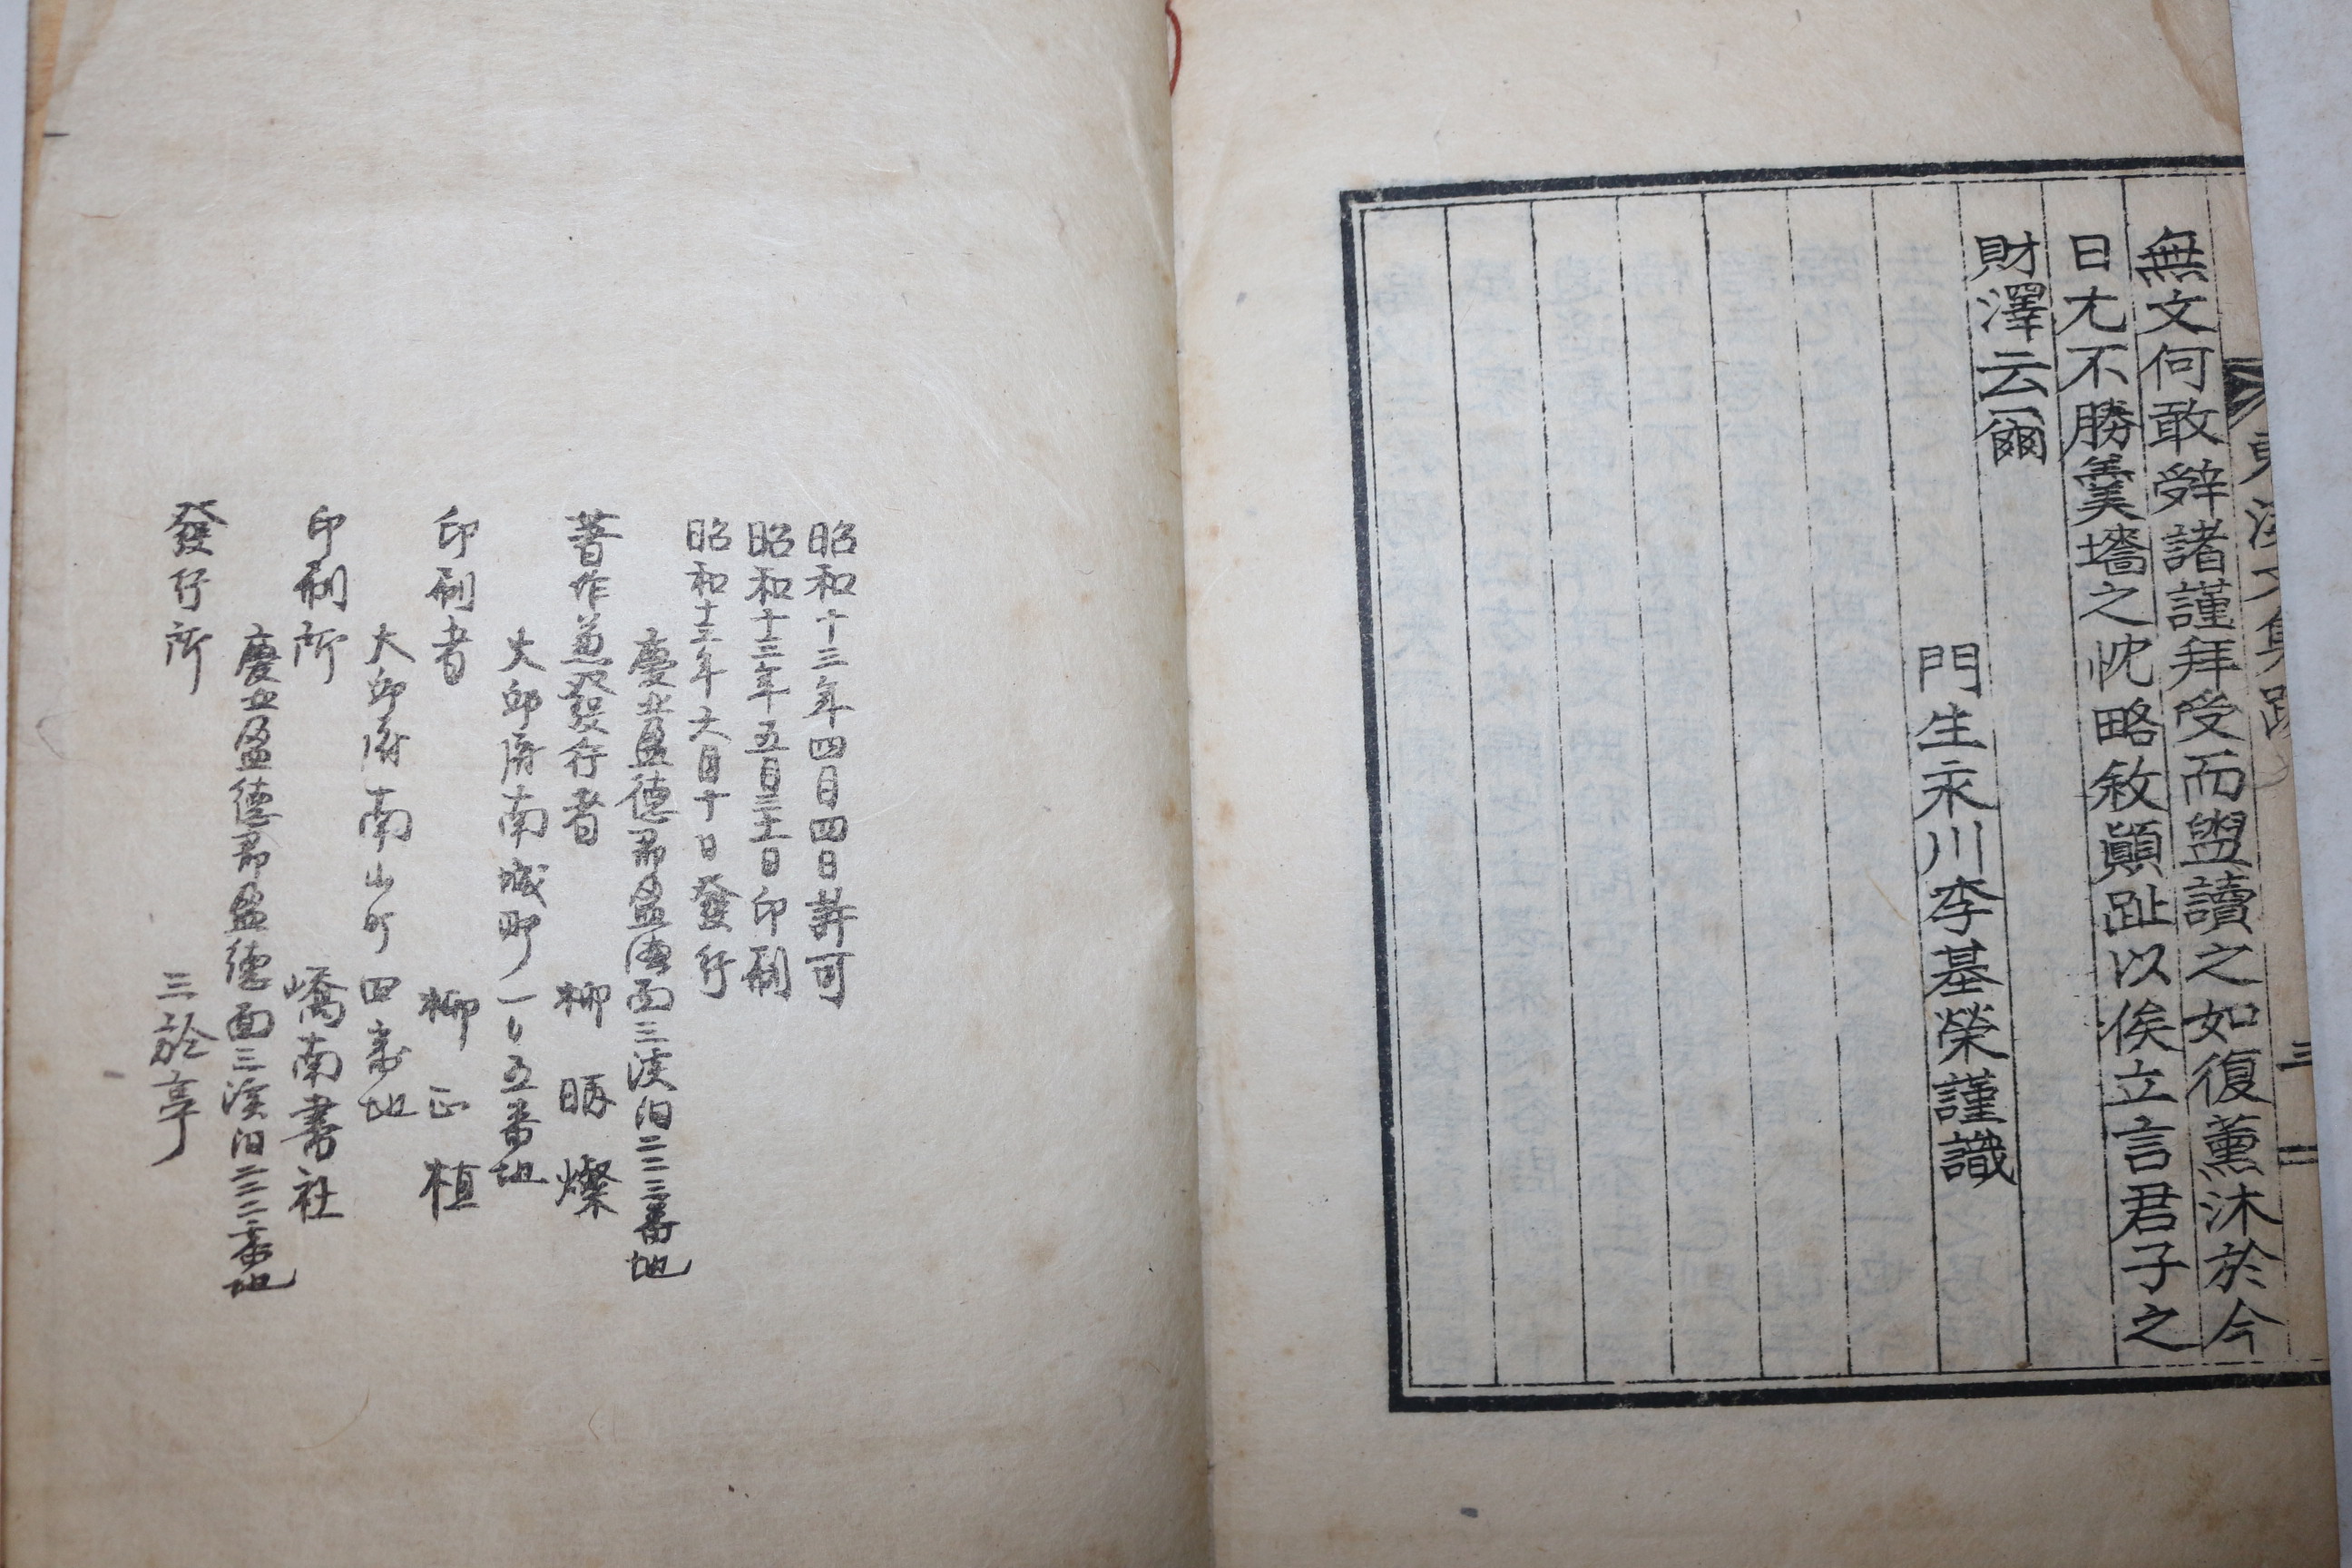 無文何敢辤諸謹拜受而盥讀之如復薰沐於今
日尤不勝羹墻之忱略敘顚趾以俟立言君子之
財澤云爾
門生永川李基榮謹識
文集跋
三
昭和十三年四月四日許可
昭和十三年五月三十一日印刷
昭和十三年六月十日發行
慶北盈德郡盈德面三溪洞二二三番地
著作兼發行者 柳 燦
大邱府南城町一〇五番地
印刷者 柳正植
大邱府南山町四番地
印刷所 嶠南書社
慶北盈德郡盈德面三溪洞二二三番地
發行所 三於亭